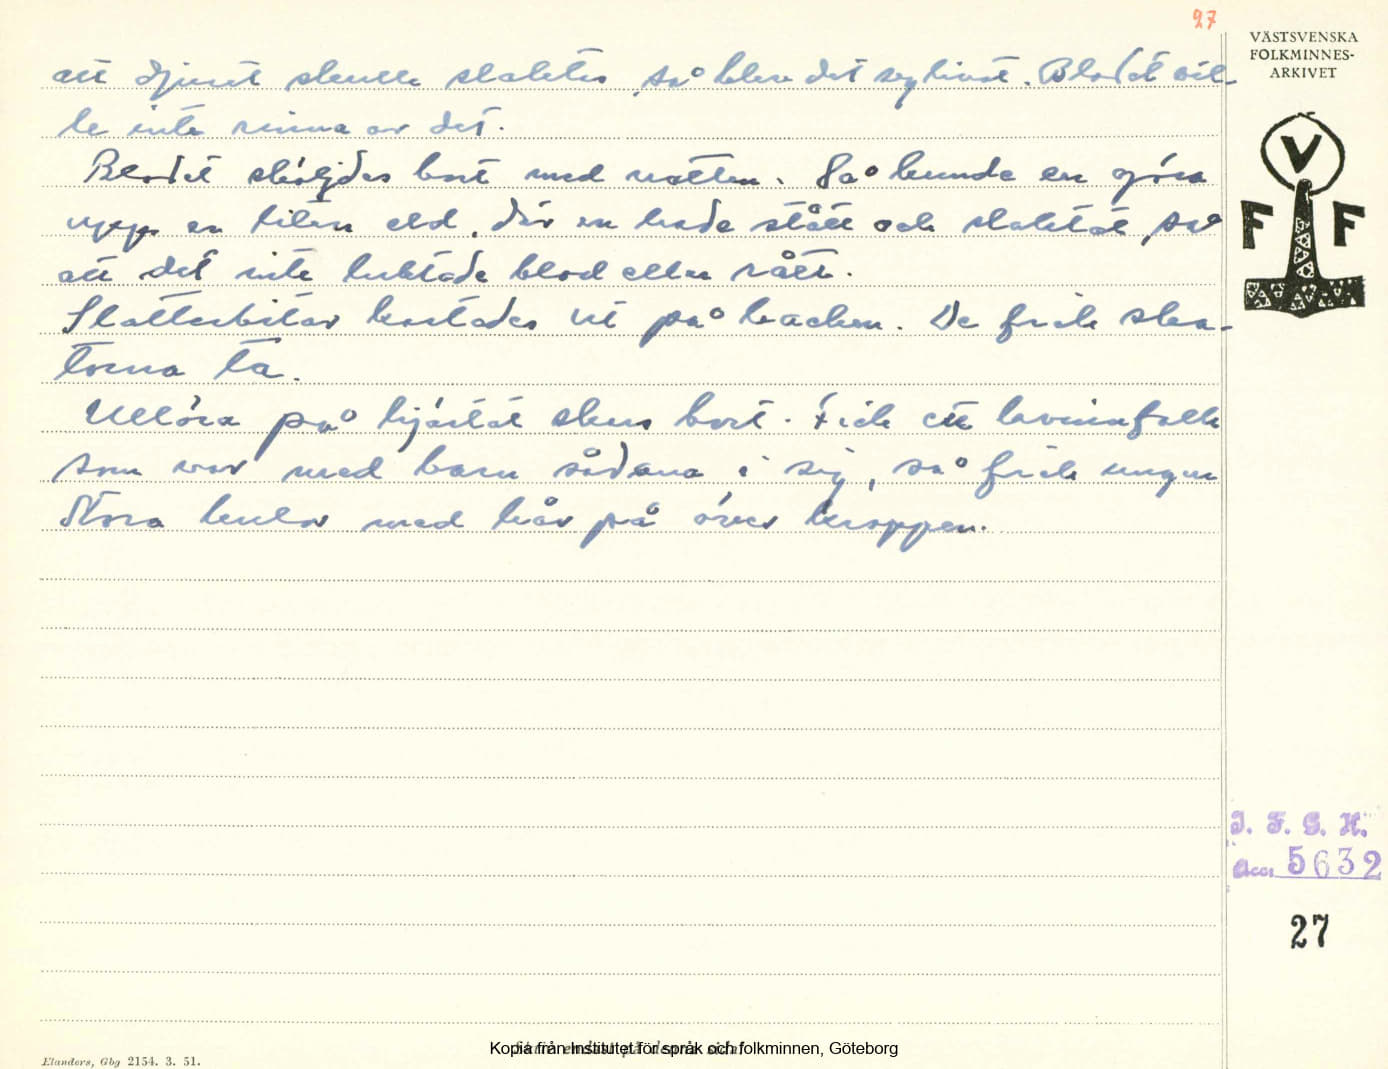 27
VÄSTSVENSKA
FOLKMINNES-
ARKIVET
V
F F
att djuret skulle slaktas, så blev det seglivat. Blodet vil-
le inte rinna av det.
Blodet sköljdes bort med vatten. Så kunde en göra
upp en liten eld, där en hade stått och slaktat, så
att det inte luktade blod eller rått.
Slatterbitar kastades ut på backen. De fick ska-
torna ta.
Ullöra på hjärtat skars bort. Fick ett kvinnfolk
som var med barn sådana i sig, så fick ungen
stora kulor med hår på över kroppen.
I. F. G. H.
Acc. 5632
27
Elanders, Gbg 2154. 3. 51.
Kopia från Institutet för språk och folkminnen, Göteborg